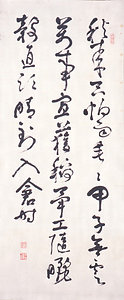 秋來只怕雨垂〻甲子無雲
萬事宜獲稻畢工隨曬
穀直須晴到入倉時